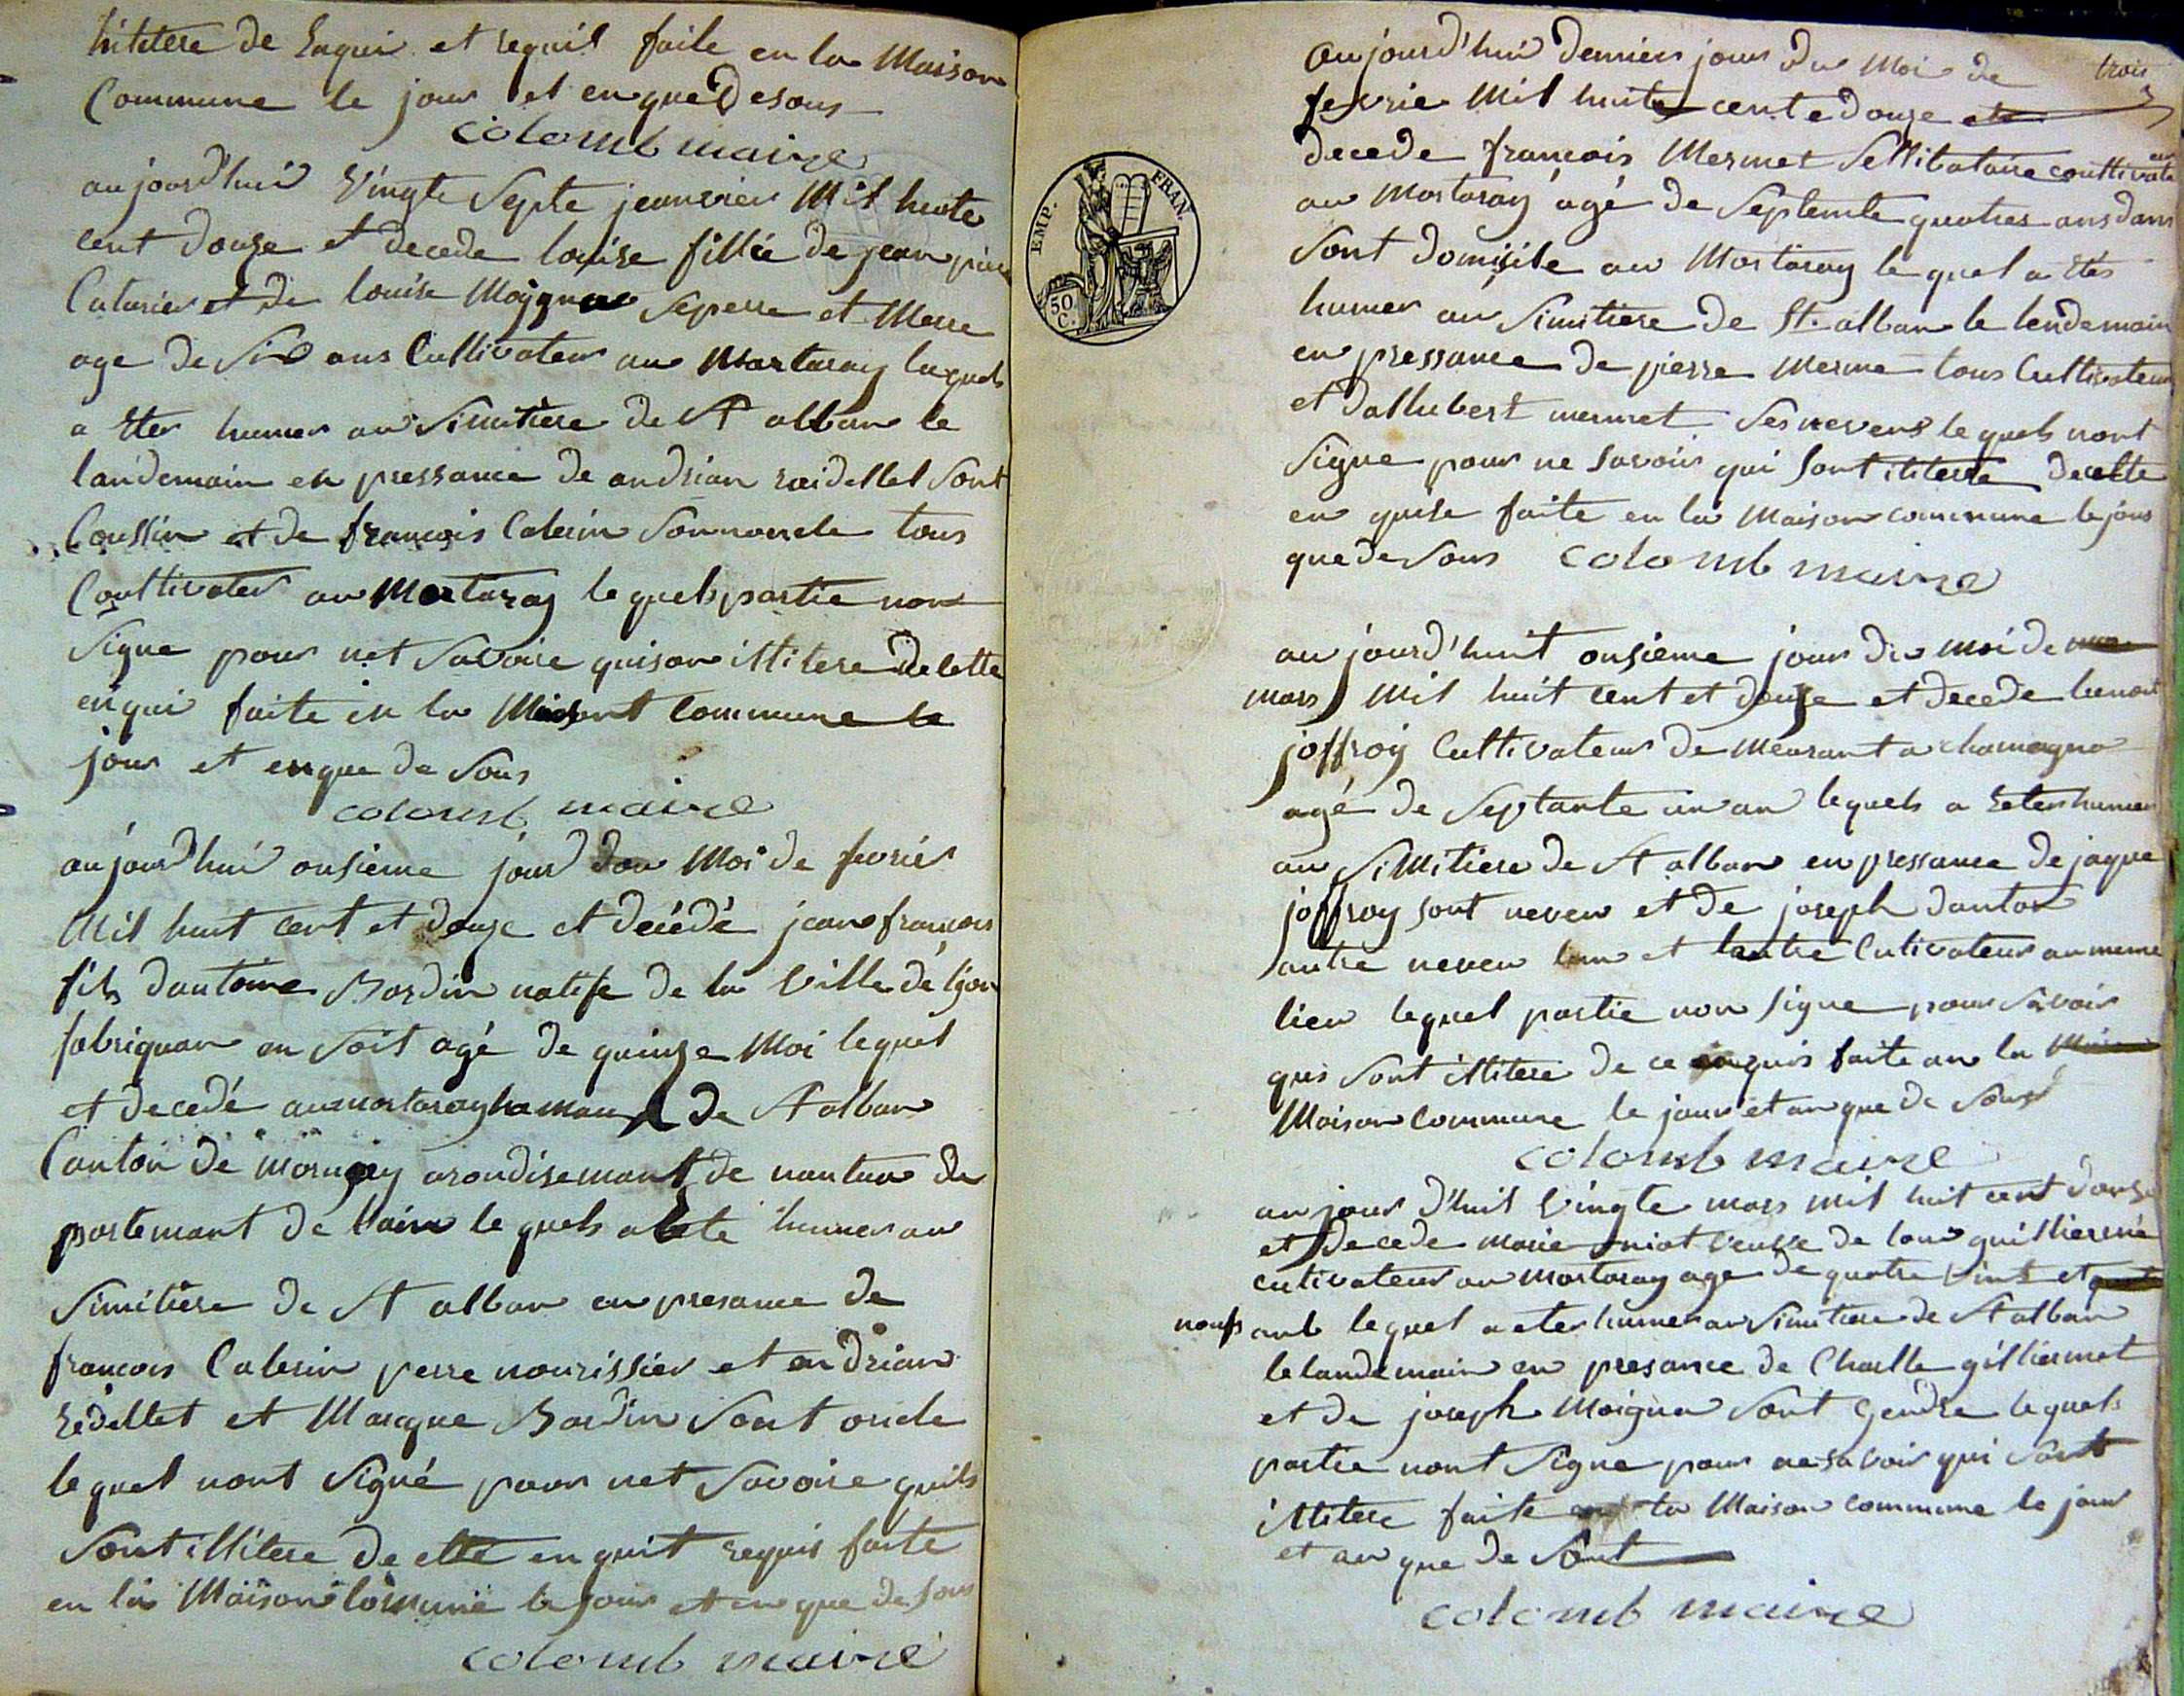 hitetere de Enqui et requit faite en la Maison
Commune le jour et en que Desous
colomb maire
aujourd'huis Vingte Septe jeanvier Mil huite
cent douze et decede louise fillie de jean pierre
Caterier et de louise Moÿgne Seperre et Merre
age de Six ans Cultivateur au Martaray laquels
a Eter humer au Simitiere de St alban le
landemain en pressance de andrian reidellet Sont
Coussin et de françois Caterin Son noncle tous
Coultivater au Martaray le quels partie non
Signe pour net Savoire quison illitere de cette
enqui faite en la Maisont Commune le
jour et enque de Sous
colomb maire
aujourd'hui onsieme jour dou Moi de fevrier
Mil huit cent et douze et décédé jean françois
fils dantoine Bardin natife de la Ville de lyon
fabriquan en Soit agé de quinze Moi lequel
et decedé au martaray hamau de St alban
Canton de mornay arondisemant de nantua de
partemant de lain le quels a Eete humer au
Simitiere de St alban en presance de
françois Caterin perre nourissier et andrian
Redellet et Marque Bardin Sont oncle
lequel nont Signé pour net Savoire quils
Sont illitere de ette en quit requis faite
en la Maison Commune le jour et en que de sous
colomb maire
trois
3
aujourd'hui Dernier jour du Moi de
fevrie Mil huite cente douze et
decede françois Mermet Sellibataire coultivateur
au Martaray agé de Septente quatres ans dans
Sont domicile au Martaray le quel a étés
humer au Simitiere de St. alban le lendemain
en pressance de pierre Merme tous Cultivateur
et dallubert mermet Ses neveux le quels nont
Signe pour ne Savoir qui Sont ilitere decette
en quise faite en la Maison commune le jour
que de Sous colomb maire
aujourd'huit onsieme jour du moi de
mars Mil huit cent et douze et decede benoit
joffroy Cultivateur de Meurant a chamagna
agé de Septante un an lequels a Eeter humer
au Simitiere de St alban en pressance de jaque
joffroy sont neveu et de joseph danton
autre neveu lun et lautre Cultivateur au meme
lieu lequel partie non Signe pour Savoir
qui Sont illitere de ce enquis faite an la
Maison Commune le jour et an que de Sous
colomb maire
aujour d'huit Vingte mars mil huit cent douze
et decede Marie veusve de loui guilliermé
cutivateur au Martaray age de quatre Vint et
noufs ans lequel a eter humer au Simitiere de St alban
le landemain en presance de Charlle gilliermet
et de joseph Moigna Sont gendre lequels
partie nont Signe pour ne savoir qui Sont
illitere faite en la Maison Commune le jour
et an que de Sout
colomb maire
EMP. FRAN
50 C.